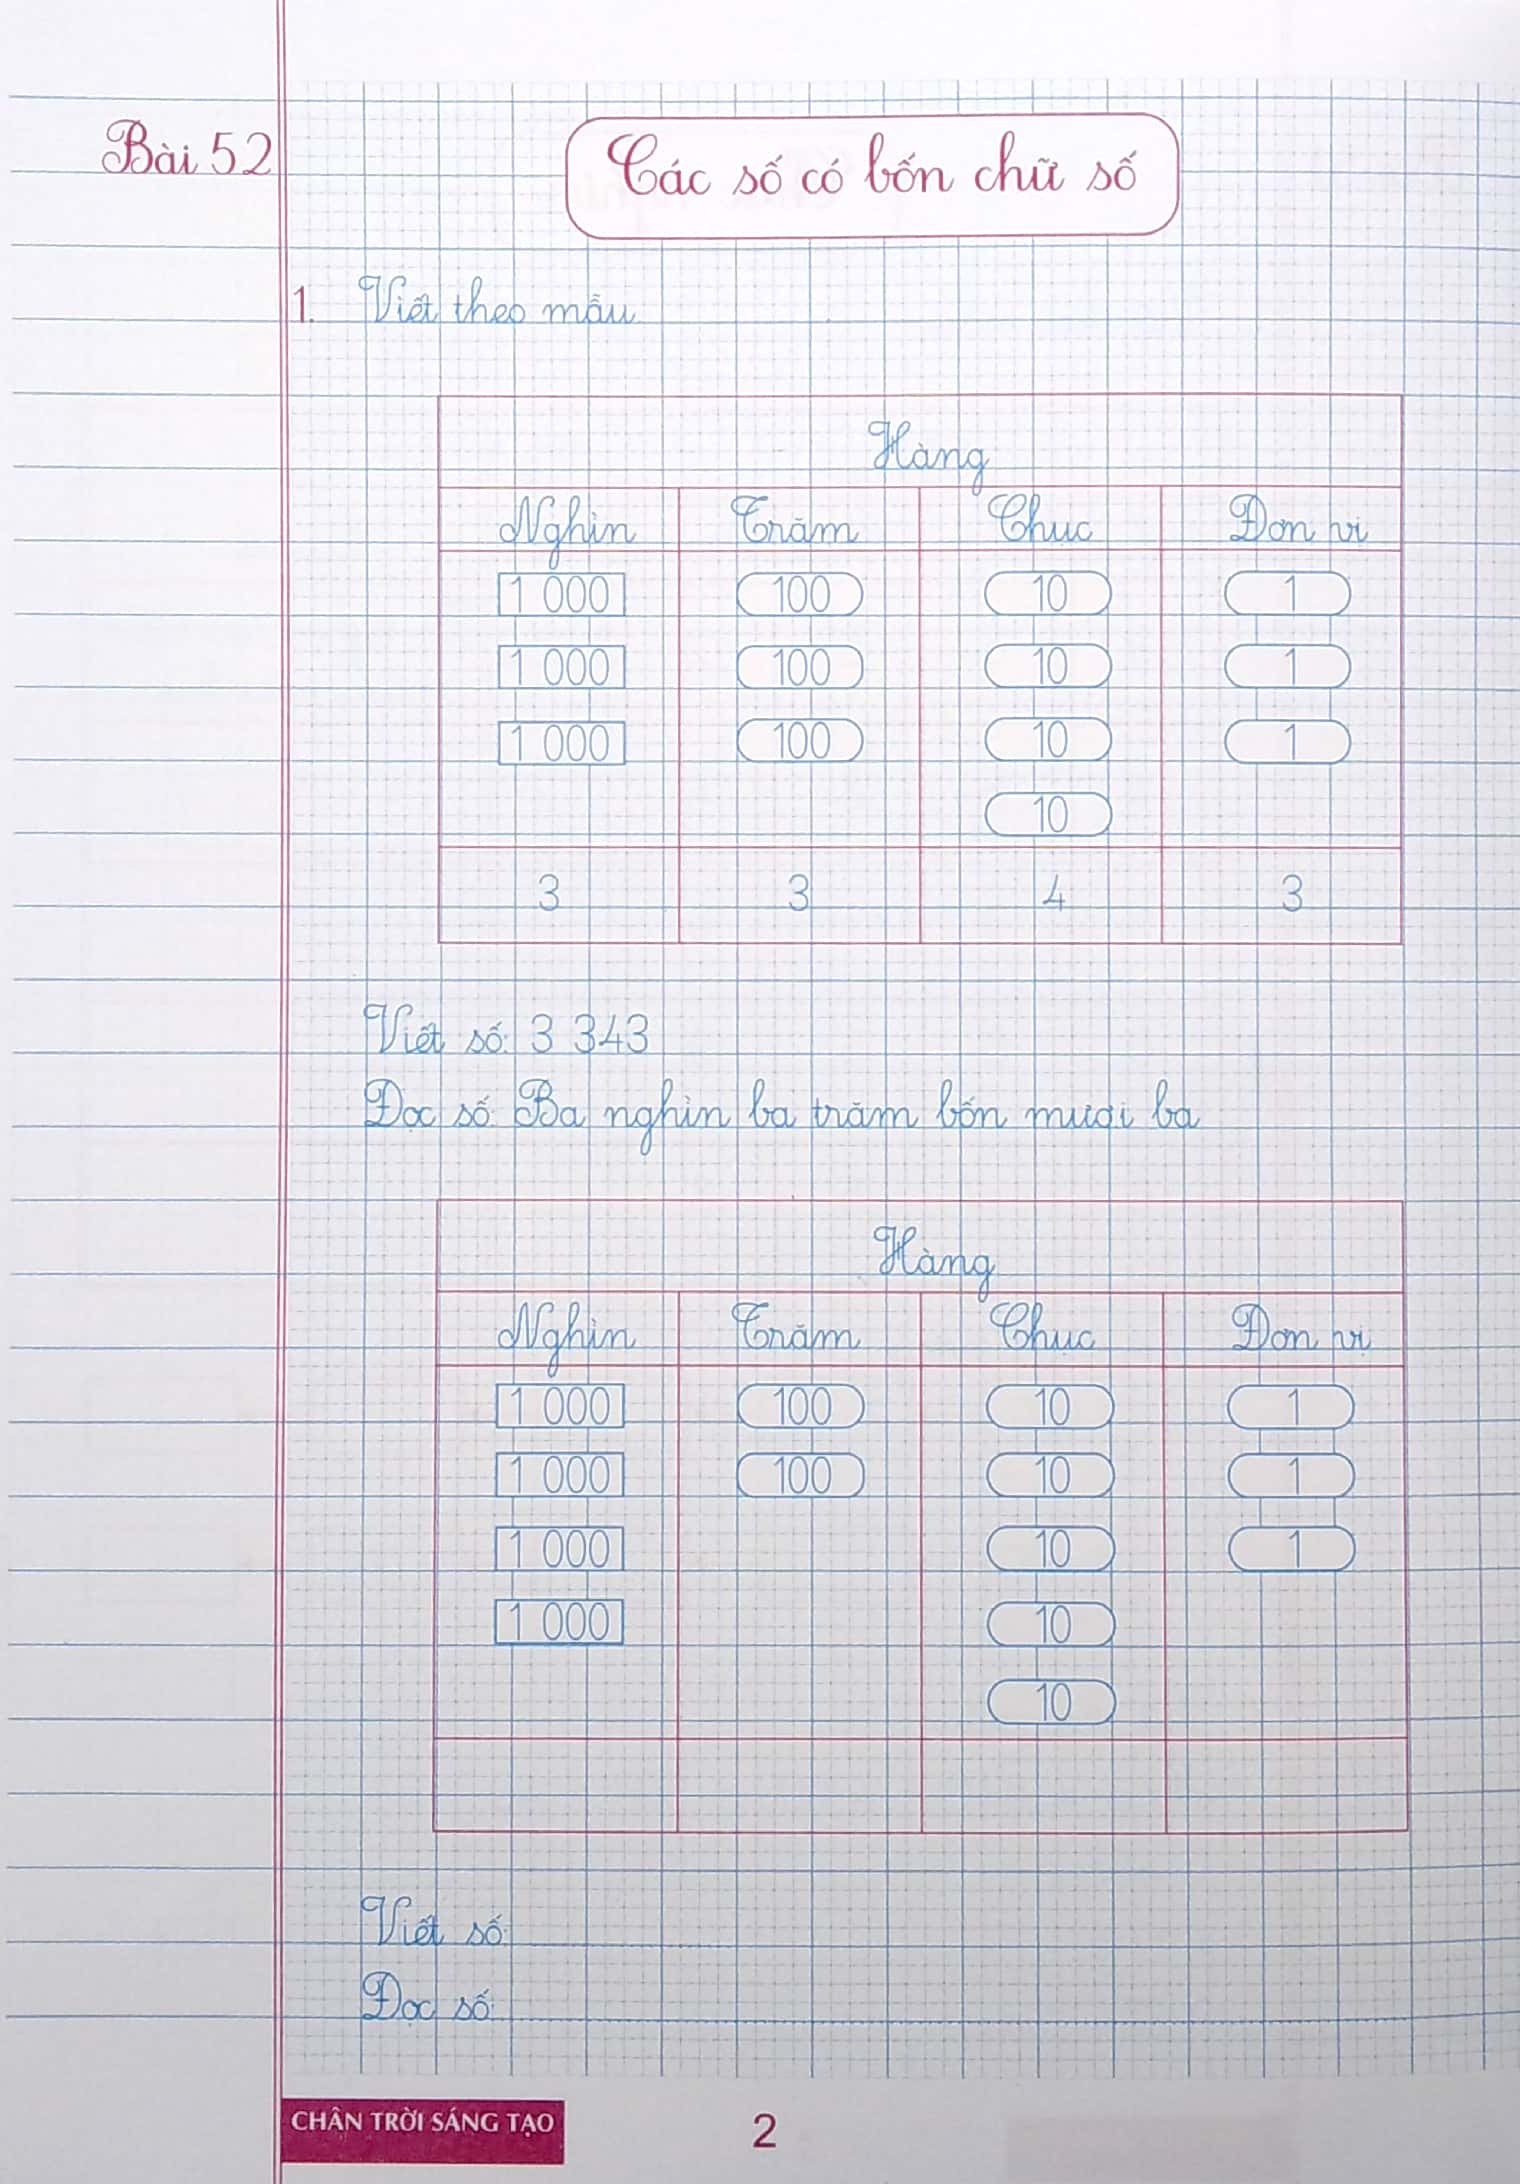 Bài 52
Các số có bốn chữ số
1. Viết theo mẫu
Hàng
Nghìn Trăm Chục Đơn vị
1 000 100 10 1
1 000 100 10 1
1 000 100 10 1
10
3 3 4 3
Viết số: 3 343
Đọc số: Ba nghìn ba trăm bốn mươi ba
Hàng
Nghìn Trăm Chục Đơn vị
1 000 100 10 1
1 000 100 10 1
1 000 10 1
1 000 10
10
Viết số:
Đọc số:
CHÂN TRỜI SÁNG TẠO
2